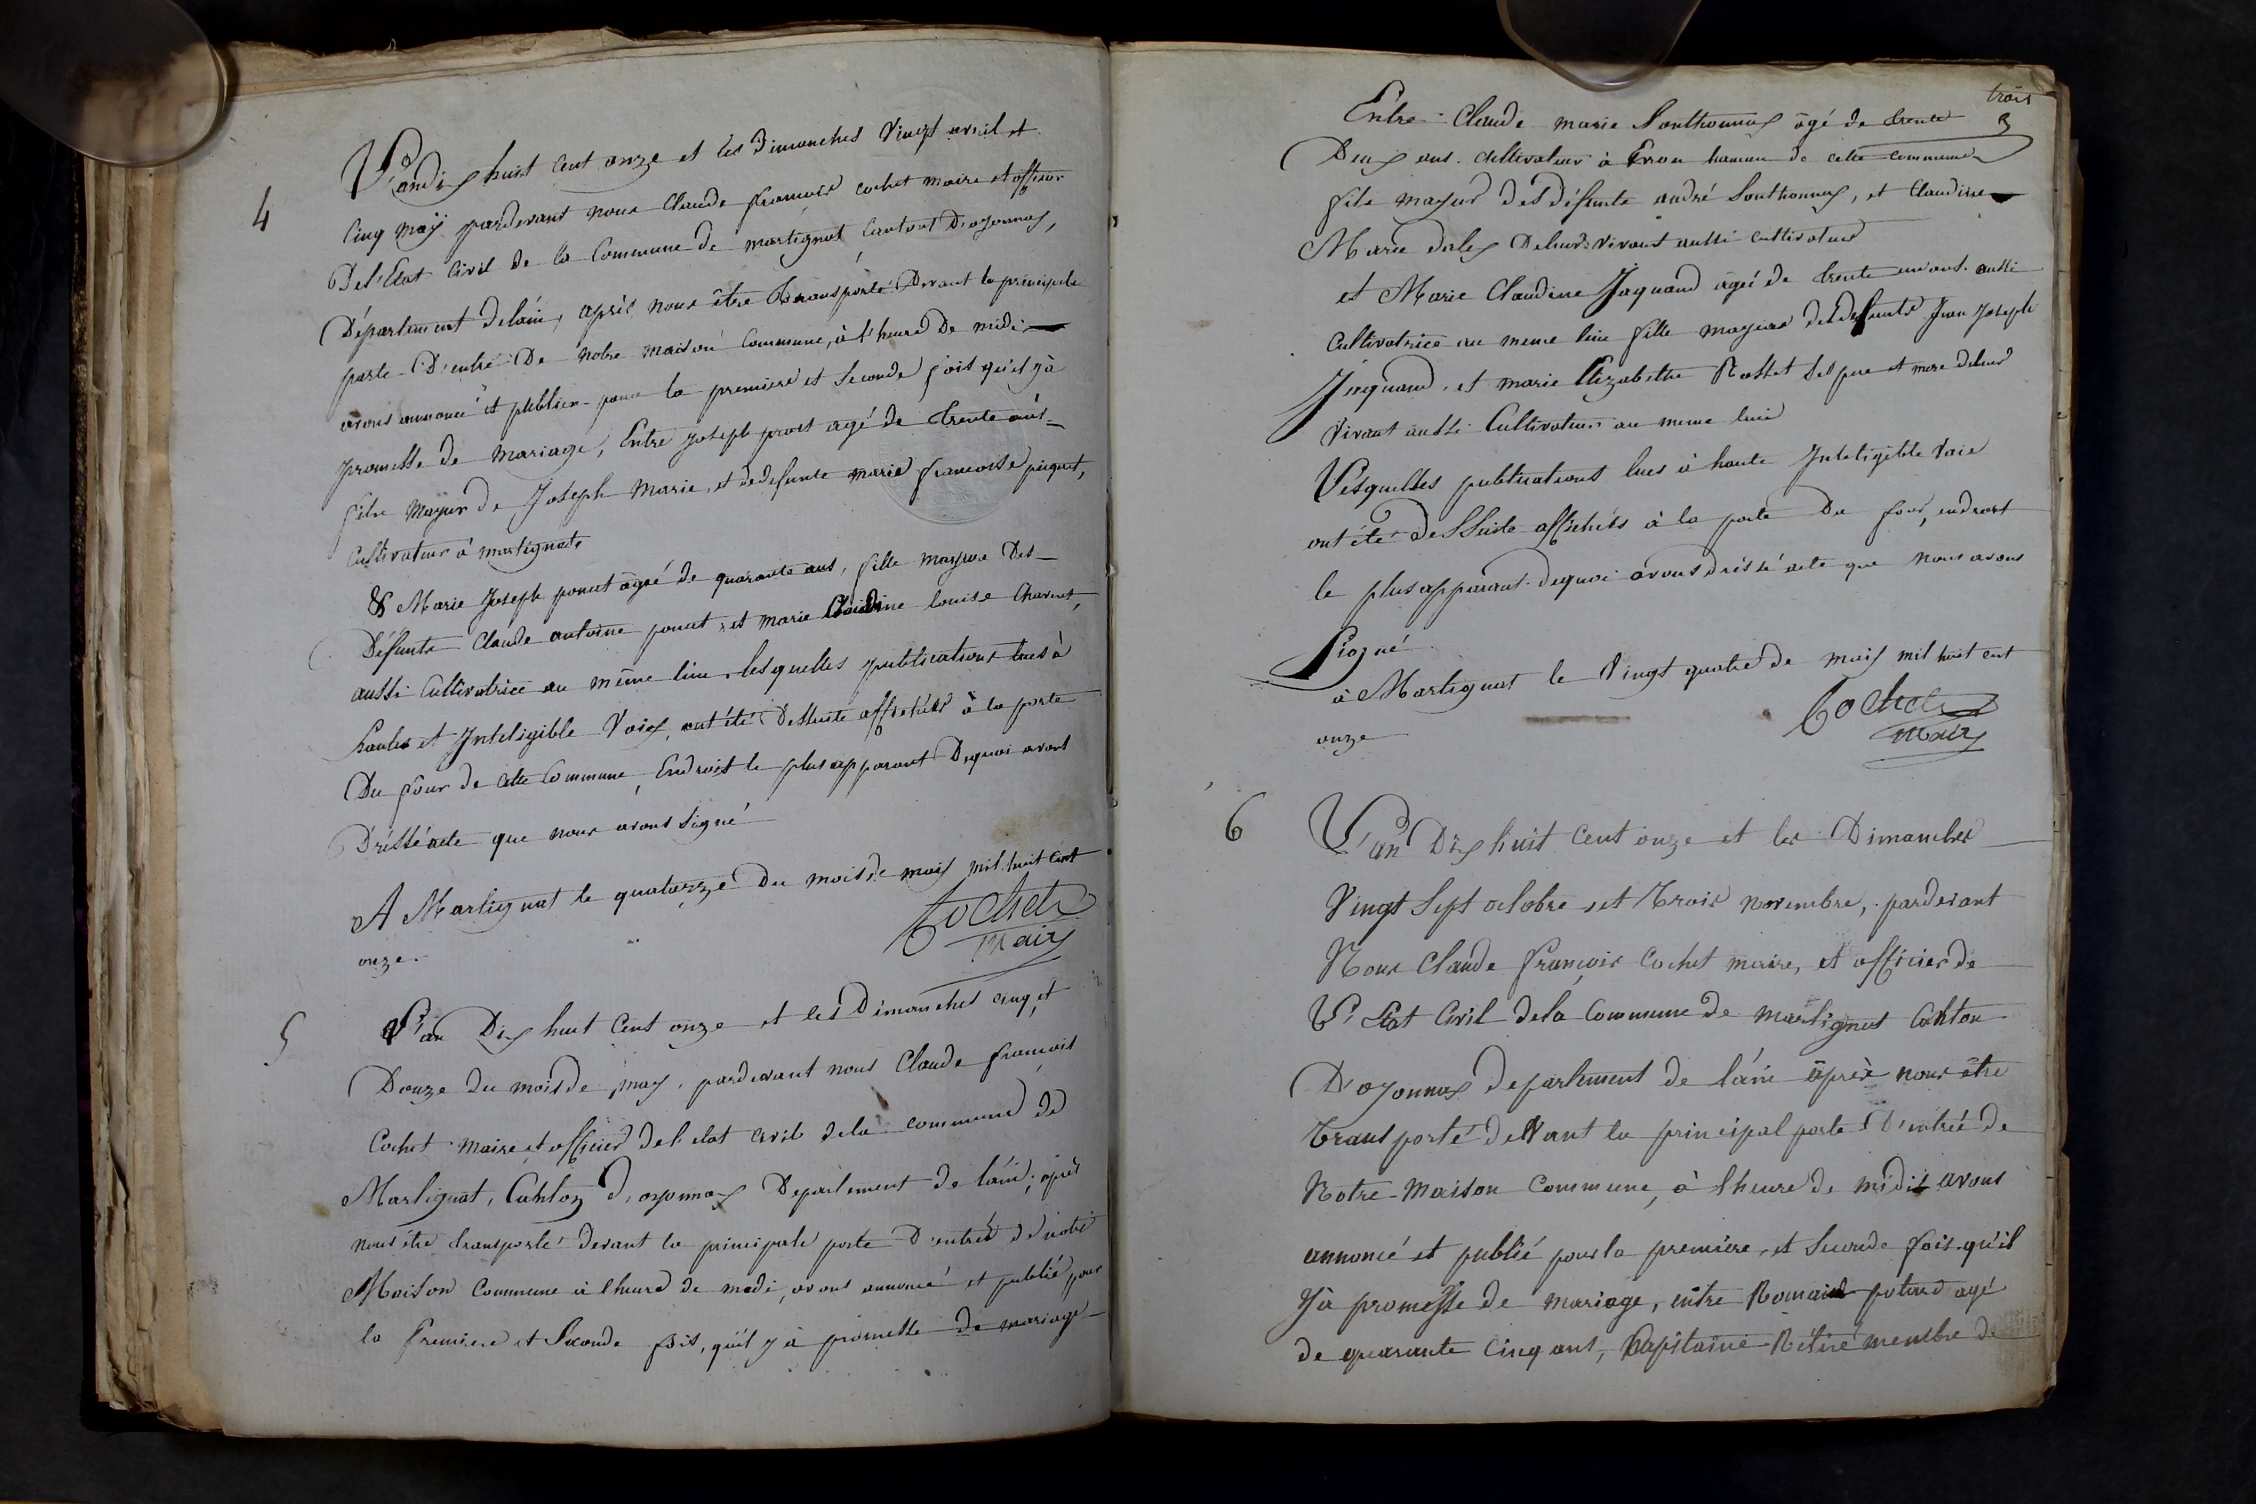 4
L'an dix huit cent onze et les dimanches vingt avril et
cinq may pardevant nous Claude françois cochet maire et officier
De l'Etat Civil de la Commune de martignat Canton D'oyonnax,
Département delain, après nous être transporté Devant la principale
porte D'entré De notre maison Commune, à l'heure De midi
avons annoncé et publier pour la premiere et seconde fois qu'il y à
promesse de mariage, Entre joseph prost agé de trente ans
fils mayur de Joseph Marie, et dedefunte marie francoise
Cultivateur à martignat
& Marie Joseph poncet agée de quarante ans, fille mayure Des
Défunts Claude antoine poncet, et marie Claudine louise Charvet,
aussi Cultivatrice au même lieu, lesquelles publications lues à
haute et Jnteligible Voix, ont été Dessuite affichées à la porte
Du four de cette Commune, Endroit le plus apparant Dequoi avons
Dréssé acte que nous avons signé
A Martignat le quatorze Du mois de may mil huit cent
onze.
Cochet
maire
5
L'an Dix huit Cent onze et les Dimanches cinq, et
Douze du mois de may, pardevant nous Claude françois
Cochet maire et officier de l'etat civil dela commune de
Martignat, Canton d'oyonnax Departement de l'ain, après
nous être transporté devant la principale porte D'entrée de notre
Maison Commune à l'heure de midi, avons annoncé et publié pour
la Premiere et Seconde fois, qu'il y à promesse de mariage
trois
3
Entre Claude marie Sonthonnax âgé de trente
Deux ans. Cultivateur à Evron hameau de cette commune
fils mayur des défunts andré Sonthonnax, et Claudine
Marie Deleur vivant aussi cultivateur
et Marie Claudine Jaquand agée de trente un ans. aussi
Cultivatrice au meme lieu fille mayure des defunts Jean Joseph
Jaquand, et marie Elizabethe Rosset ses pere et mere deleur
vivant aussi Cultivateurs au meme lieu
Lesquelles publications lues à haute Jnteligible voix
ont été Dessuite affichées à la porte Du four, endroit
le plus apparant. dequoi avons dréssé acte que nous avons
Signé
à Martignat le Vingt quatre de may mil huit cent
onze
Cochet
maire
6
L'an Dix huit Cent onze et les Dimanches
Vingt Sept octobre, et trois novembre, pardevant
Nous Claude françois Cochet maire, et officier de
L'Etat Civil dela Commune de martignat Canton
D'oyonnax departement de l'ain après nous être
transporté devant la principal porte D'entrée de
Notre Maison Commune, à l'heure de midi avons
annoncé et publié pour la premiere, et Seconde fois qu'il
y à promesse de mariage, entre Romain agé
de quarante cinq ans, Capitaine Rétiré membre de